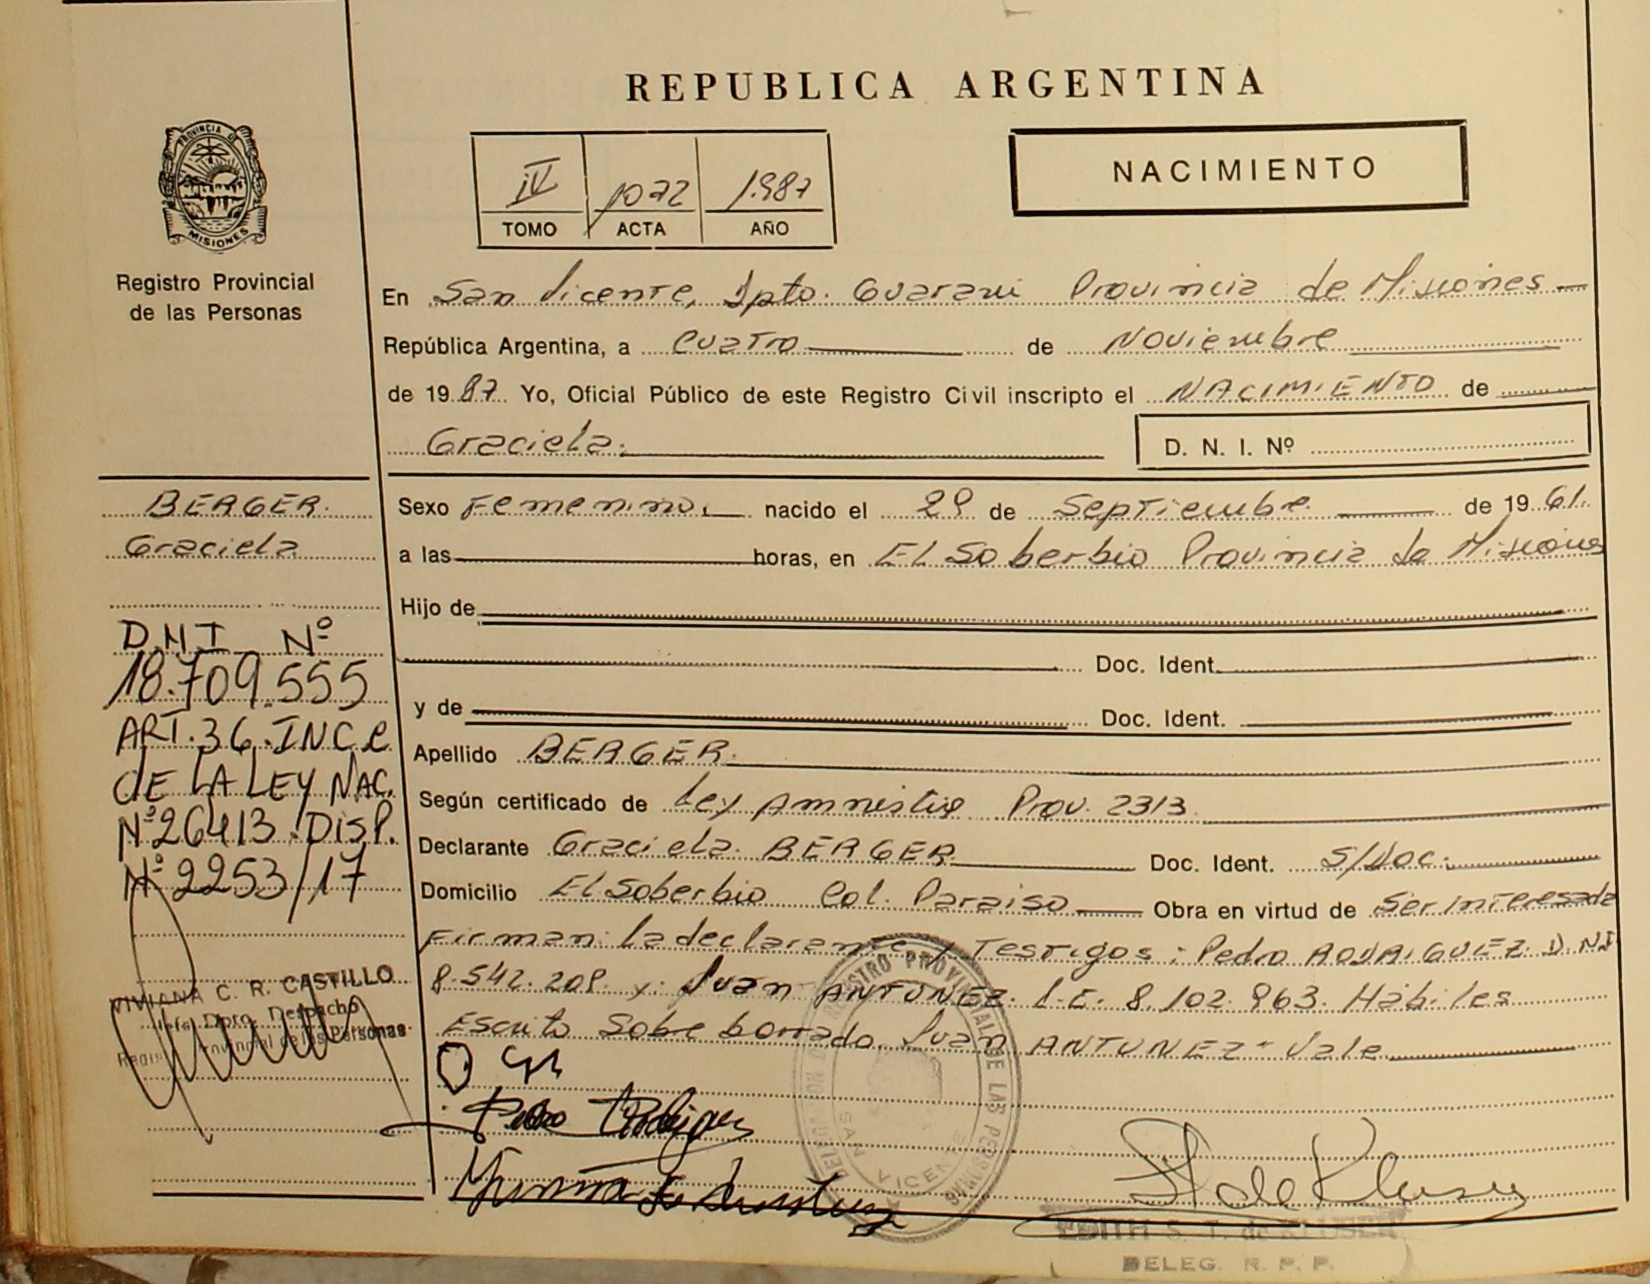 REPUBLICA ARGENTINA
PROVINCIA DE
MISIONES
Registro Provincial
de las Personas
IV 1072 1.987
TOMO ACTA AÑO
NACIMIENTO
En San Vicente, Dpto. Guarani Provincia de Misiones
República Argentina, a Cuatro de Noviembre
de 1987 Yo, Oficial Público de este Registro Civil inscripto el NACIMIENTO de
Graciela.
D. N. I. Nº
BERGER.
Graciela
D.N.I Nº
18.709.555
ART.36.INC.C
DE LA LEY NAC.
Nº26413.DISP.
Nº2253/17
VIVIANA C. R. CASTILLO
Jefa Dpto. Despacho
Provincial de las Personas
Sexo Femenino. nacido el 29 de Septiembre de 1961.
a las horas, en EL Soberbio Provincia de Misiones
Hijo de
Doc. Ident.
y de Doc. Ident.
Apellido BERGER.
Según certificado de Ley Amnistia Prov. 2313.
Declarante Graciela BERGER Doc. Ident. S/Doc.
Domicilio EL Soberbio Col. Paraiso Obra en virtud de Ser interesada
Firman: la declarante y Testigos: Pedro RODRIGUEZ D.NI
8.542.208. y Juan ANTUNEZ. L.E. 8.102.963. Habiles
Escrito Sobre borrado Juan ANTUNEZ - Vale
Pedro Rodriguez
REGISTRO PROVINCIAL DE LAS PERSONAS
SAN VICENTE
EDITH S. T. de KLUSER
BELEG. R. P. P.